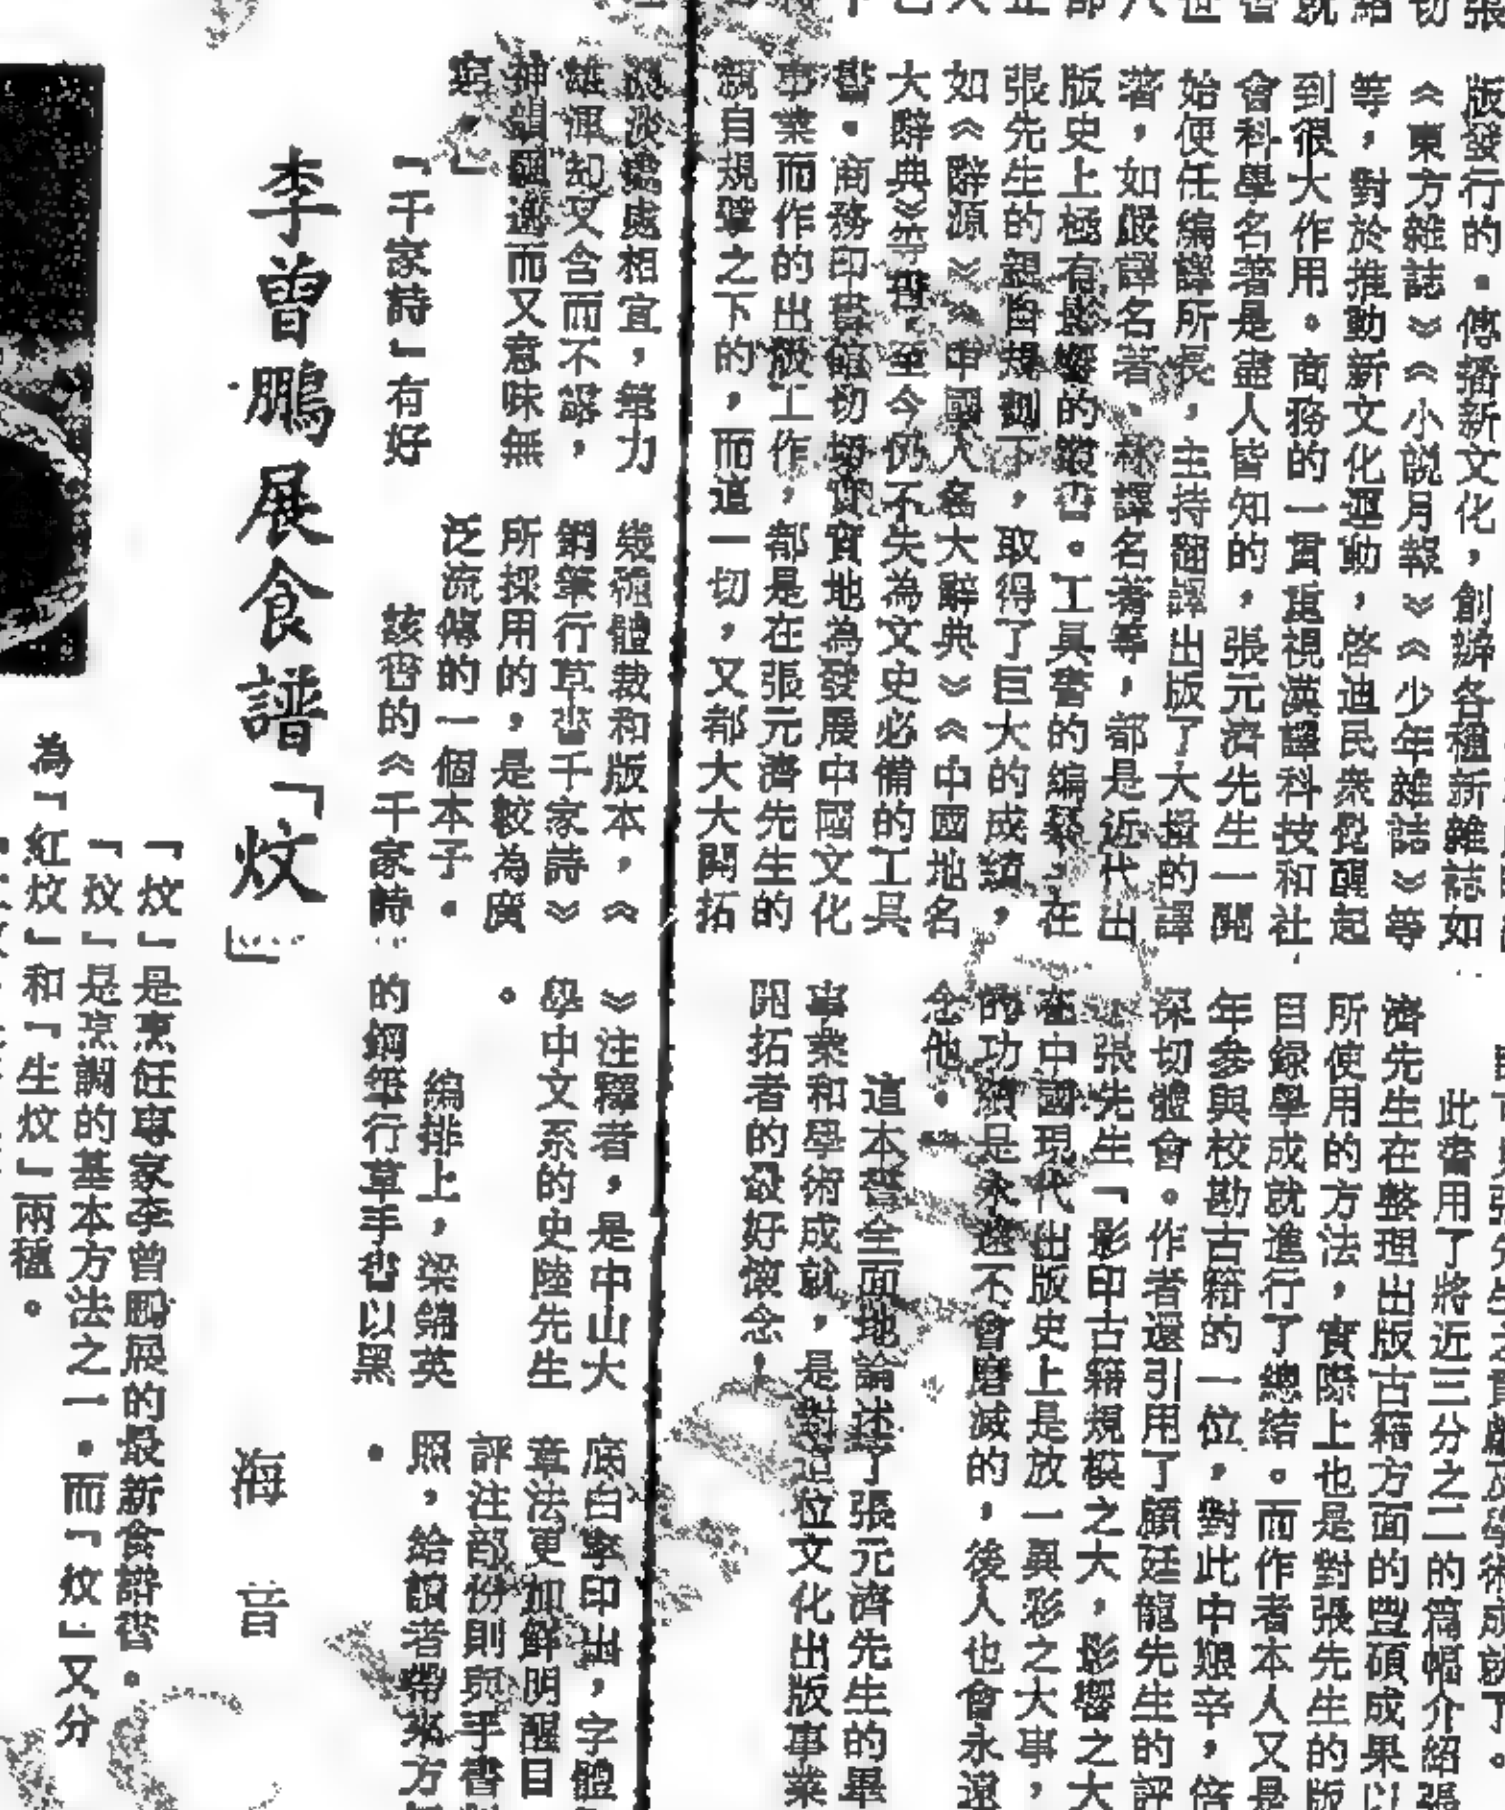 版發行的。傳播新文化，創辦各種新雜誌如
《東方雜誌》《小説月報》《少年雜誌》等
等，對於推動新文化運動，啓迪民衆覺醒起
到很大作用。商務的一貫重視漢譯科技和社
會科學名著是盡人皆知的，張元濟先生一開
始便任編譯所長，主持翻譯出版了大量的譯
著，如嚴譯名著、林譯名著等，都是近代出
版史上極有影響的叢書。工具書的編纂，在
張先生的親自規劃下，取得了巨大的成績，
如《辭源》《中國人名大辭典》《中國地名
大辭典》等書，至今仍不失為文史必備的工具
書。商務印書館切切實實地為發展中國文化
事業而作的出版工作，都是在張元濟先生的
親自規擘之下的，而這一切，又都大大開拓
此書用了將近三分之二的篇幅介紹張
濟先生在整理出版古籍方面的豐碩成果以
所使用的方法，實際上也是對張先生的版
目録學成就進行了總結。而作者本人又是
年參與校勘古籍的一位，對此中艱辛，倍
深切體會。作者還引用了顧廷龍先生的評
張先生「影印古籍規模之大，影響之大
在中國現代出版史上是放一異彩之大事，
的功績是永遠不會磨滅的，後人也會永遠
念他。」
這本書全面地論述了張元濟先生的畢
事業和學術成就，是對這位文化出版事業
開拓者的最好懷念！
濃淡處處相宜，筆力
雄渾却又含而不露，
神韻飄逸而又意味無
窮。」
「千家詩」有好
幾種體裁和版本，《
鋼筆行草書千家詩》
所採用的，是較為廣
泛流傳的一個本子。
該書的《千家詩
》注釋者，是中山大
學中文系的史陸先生
。
編排上，梁錦英
的鋼筆行草手書以黑
底白字印出，字體
章法更加鮮明醒目
評注部份則與手書
照，給讀者帶來方
。
李曾鵬展食譜「炆」
海音
「炆」是烹飪專家李曾鵬展的最新食譜書。
「炆」是烹調的基本方法之一。而「炆」又分
為「紅炆」和「生炆」兩種。